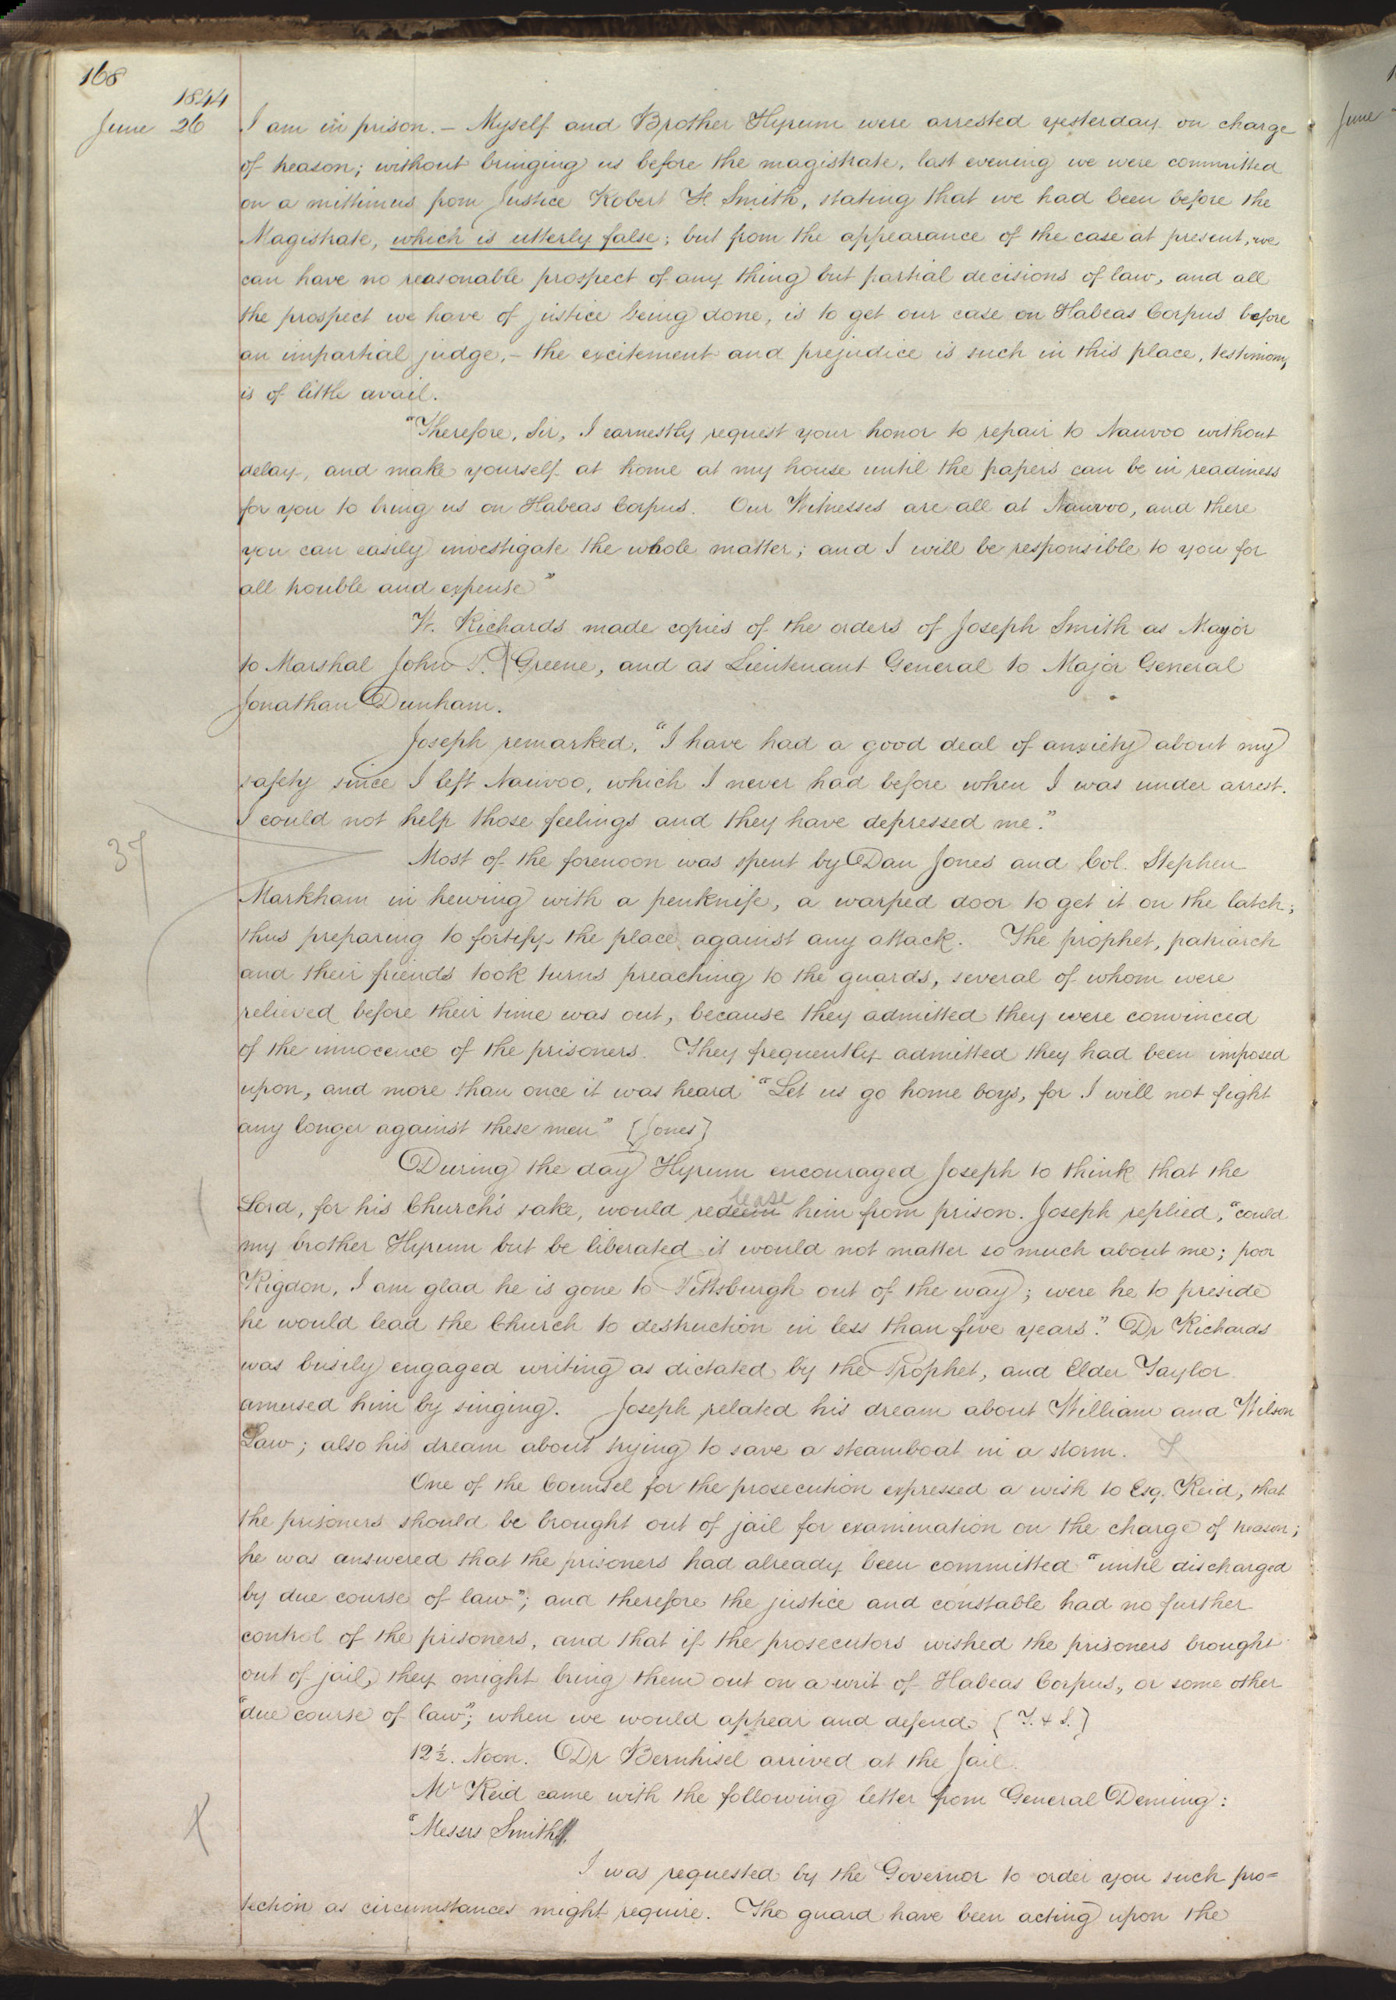 168
1844
June 26 I am in prison. — Myself and Brother Hyrum were arrested yesterday on charge
of treason; without bringing us before the magistrate, last evening we were committed
on a mittimus from Justice Robert F. Smith, stating that we had been before the
Magistrate, which is utterly false; but from the appearance of the case at present, we
can have no reasonable prospect of any thing but partial decisions of law, and all
the prospect we have of justice being done, is to get our case on Habeas Corpus before
an impartial judge, — the excitement and prejudice is such in this place, testimony
is of little avail.
"Therefore, Sir, I earnestly request your honor to repair to Nauvoo without
delay, and make yourself at home at my house until the papers can be in readiness
for you to bring us on Habeas Corpus. Our Witnesses are all at Nauvoo, and there
you can easily investigate the whole matter; and I will be responsible to you for
all trouble and expense"
W. Richards made copies of the orders of Joseph Smith as Mayor
to Marshal John P. Greene, and as Lieutenant General to Major General
Jonathan Dunham.
Joseph remarked, "I have had a good deal of anxiety about my
safety since I left Nauvoo, which I never had before when I was under arrest.
I could not help those feelings and they have depressed me."
37
Most of the forenoon was spent by Dan Jones and Col. Stephen
Markham in hewing with a penknife, a warped door to get it on the latch;
thus preparing to fortify the place against any attack. The prophet, patriarch
and their friends took turns preaching to the guards, several of whom were
relieved before their time was out, because they admitted they were convinced
of the innocence of the prisoners. They frequently admitted they had been imposed
upon, and more than once it was heard "Let us go home boys, for I will not fight
any longer against these men" [Jones]
During the day Hyrum encouraged Joseph to think that the
lease
Lord, for his Church's sake, would redeem him from prison. Joseph replied, "could
my brother Hyrum but be liberated it would not matter so much about me; poor
Rigdon, I am glad he is gone to Pittsburgh out of the way; were he to preside
he would lead the Church to destruction in less than five years." Dr Richards
was busily engaged writing as dictated by the Prophet, and Elder Taylor
amused him by singing. Joseph related his dream about William and Wilson
Law; also his dream about trying to save a steamboat in a storm.
One of the Counsel for the prosecution expressed a wish to Esq. Reid, that
the prisoners should be brought out of jail for examination on the charge of treason;
he was answered that the prisoners had already been committed "until discharged
by due course of law"; and therefore the justice and constable had no further
control of the prisoners, and that if the prosecutors wished the prisoners brought
out of jail, they might bring them out on a writ of Habeas Corpus, or some other
"due course of law"; when we would appear and defend. [T. & S.]
12½. Noon. Dr Bernhisel arrived at the Jail.
Mr Reid came with the following letter from General Deming:
X
"Messrs Smith
I was requested by the Governor to order you such pro=
tection as circumstances might require. The guard have been acting upon the
June